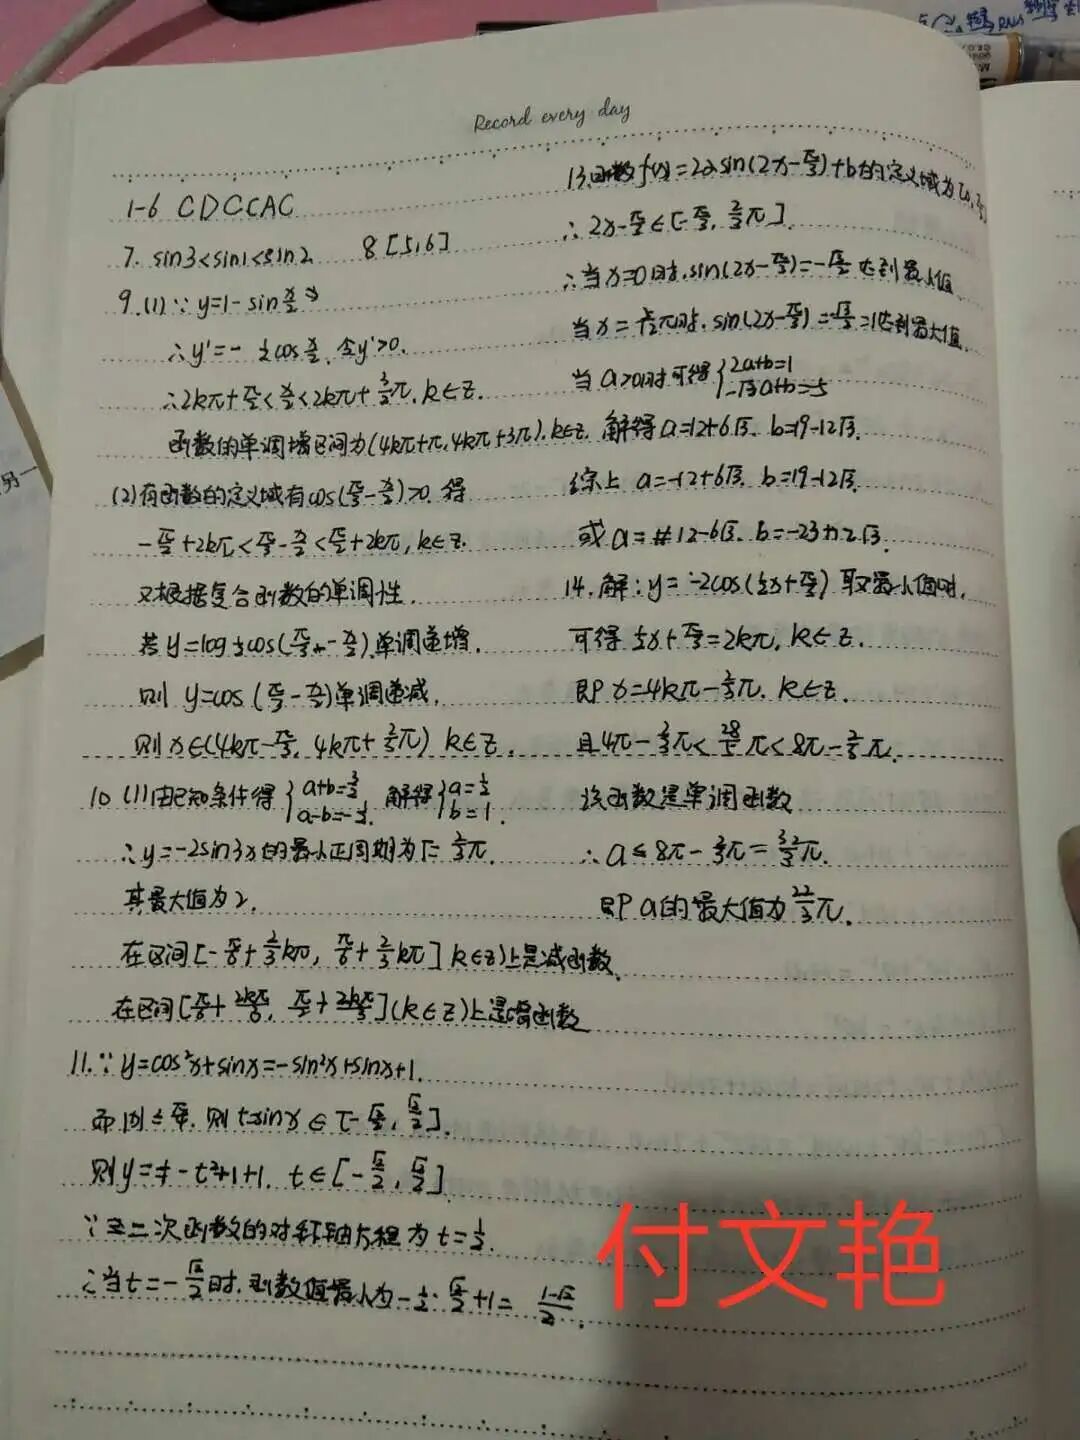 Record every day
1-6 CDCCAC
7. sin3<sin1<sin2 8 [5,6]
9.(1)∵y=1-sin x/2
∴y'=-1/2cos x/2, 令y'>0.
∴2kπ+π/2<x/2<2kπ+3/2π, k∈z.
函数的单调增区间为(4kπ+π,4kπ+3π),k∈z.
(2)有函数的定义域有cos(π/3-x/2)>0.得
-π/2+2kπ<π/3-x/2<π/2+2kπ,k∈z.
又根据复合函数的单调性.
若y=log 1/2 cos(π/3-x/2)单调递增.
则 y=cos(π/3-x/2)单调递减.
则x∈(4kπ-π/3, 4kπ+2/3π) k∈z.
10 (1)由已知条件得{a+b=3/2 a-b=-1/2. 解得{a=1/2 b=1.
∴y=-2sin3x的最小正周期为T=2/3π.
其最大值为2.
在区间[-π/6+2/3kπ, π/6+2/3kπ] k∈z)上是减函数
在区间[π/6+2kπ/3, π/2+2kπ/3](k∈z)上是增函数
11.∵y=cos²x+sinx=-sin²x+sinx+1.
而|x|≤π/4.则t=sinx∈[-√2/2,√2/2].
则y=-t²+1+1. t∈[-√2/2,√2/2]
∵二次函数的对称轴方程为t=1/2.
∴当t=-√2/2时.函数值最小为-1/2-√2/2+1=(1-√2)/2.
13.函数f(x)=2a sin(2x-π/3)+b的定义域为
∴2x-π/3∈[-π/3, 2/3π].
∴当x=0时.sin(2x-π/3)=-√3/2达到最小值
当x=5/12π时. sin(2x-π/3)=1达到最大值.
当a>0时可得{2a+b=1 -√3a+b=-5
解得a=12+6√3. b=19-12√3.
综上 a=-12+6√3. b=19-12√3.
或a=12-6√3. b=-23+12√3.
14.解:y=-2cos(1/2x+π/3)取最小值时,
可得1/2x+π/3=2kπ,k∈z.
即x=4kπ-2/3π. k∈z.
且4π-2/3π<28/5π<8π-2/3π.
该函数是单调函数
∴a≤8π-2/3π=22/3π.
即a的最大值为22/3π.
付文艳